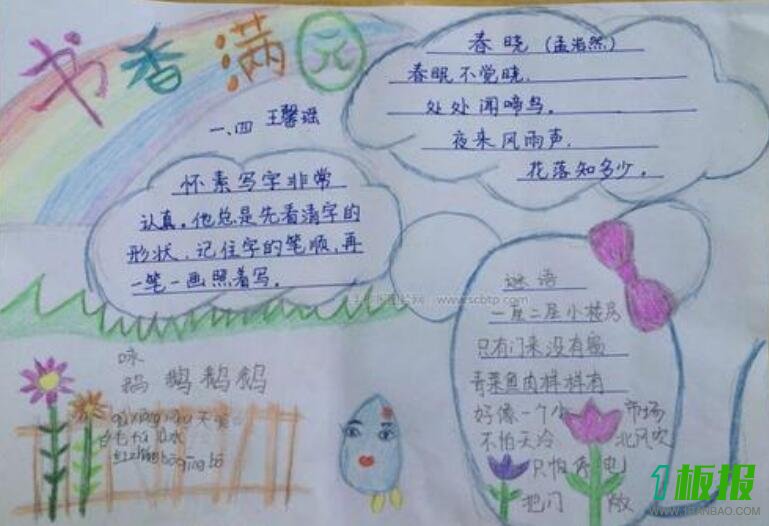 书香满园
一、四 王馨瑶
春晓 (孟浩然)
春眠不觉晓,
处处闻啼鸟。
夜来风雨声,
花落知多少。
怀素写字非常
认真。他总是先看清字的
形状、记住字的笔顺,再
一笔一画照着写。
www.scbtp.com
谜语
一层二层小楼房
只有门来没有窗
青菜鱼肉样样有
好像一个小 市场
不怕天冷 北风吹
只怕停电
把门 放
咏
鹅 鹅鹅鹅
qū xiàng xiàng 天
白毛 水
bō qīng bō
1板报
WWW.1BANBAO.COM